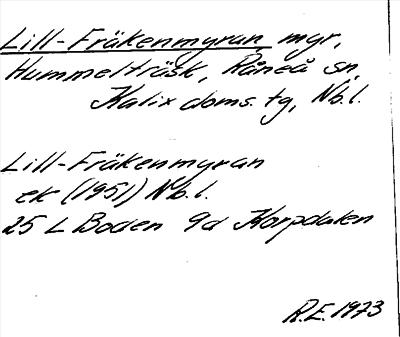 Lill-Fräkenmyran mgr,
Hummelträsk, Råneå sn,
Kalix doms. tg, Nb.l.
Lill-Fräkenmyran
ek (1951) Nb.l.
25 L Boden 9d Korpdalen
R.E. 1973